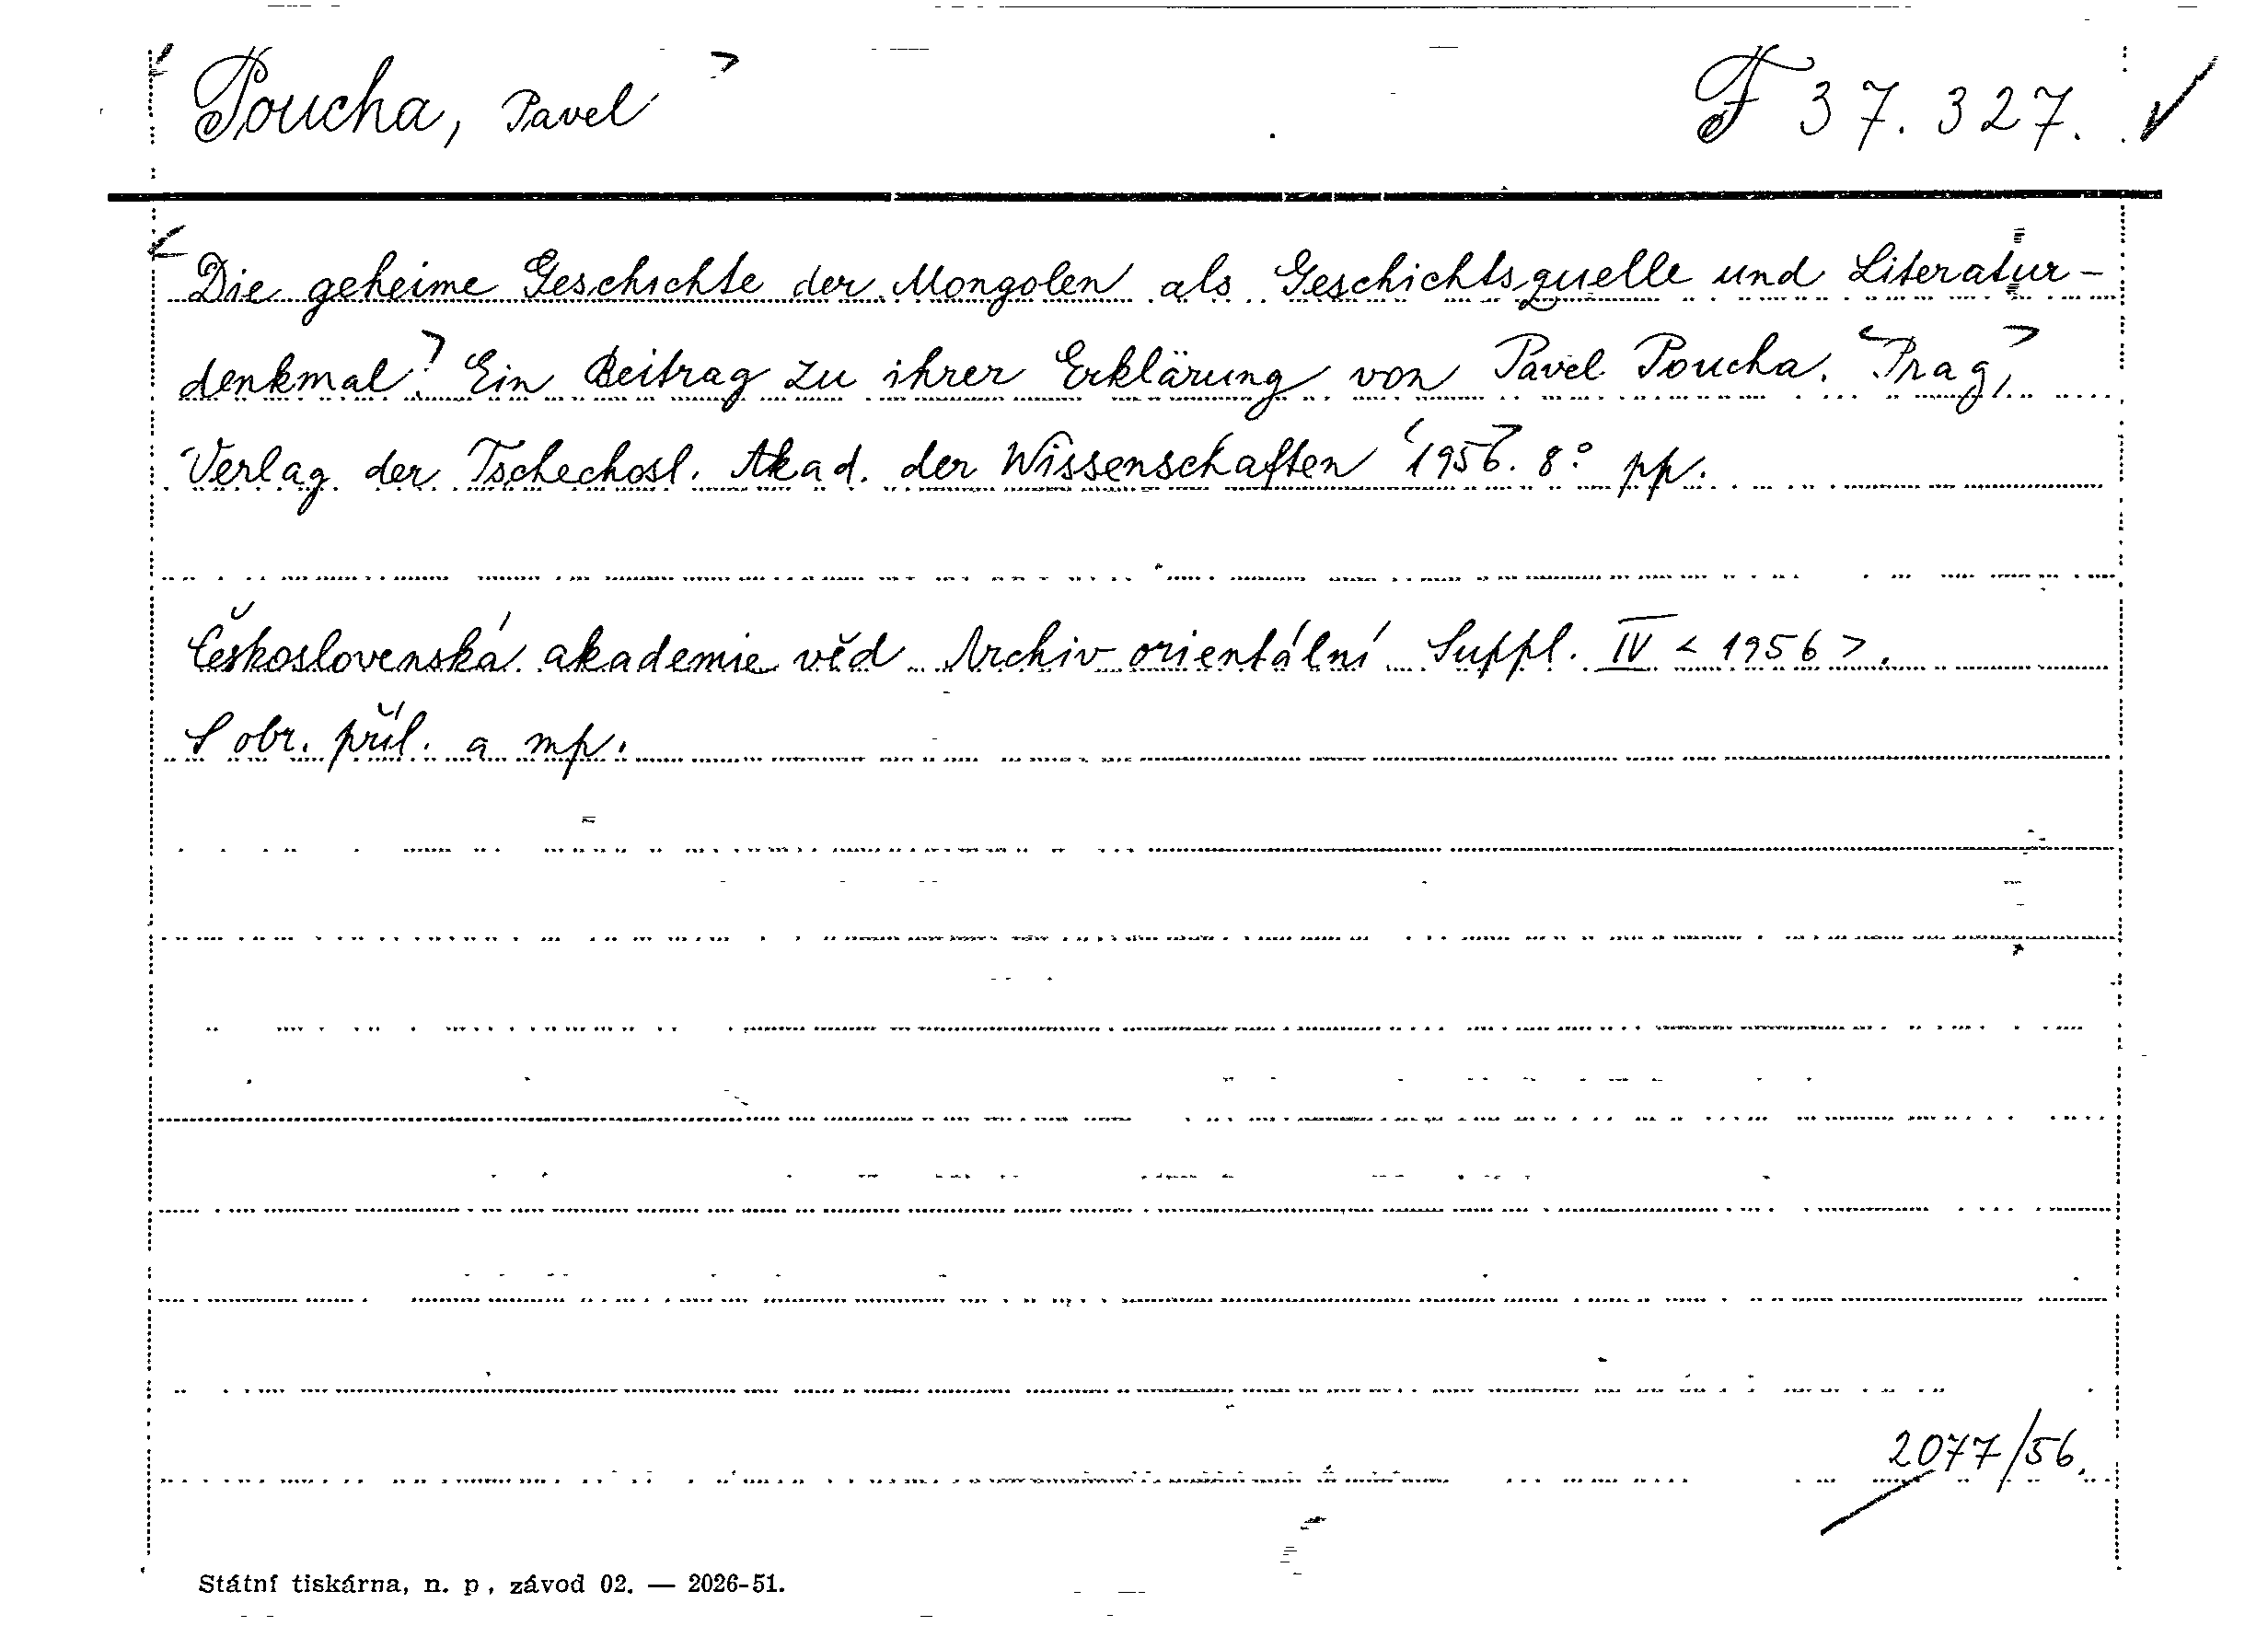 Poucha, Pavel F 37.327.
Die geheime Geschichte der Mongolen als Geschichtsquelle und Literatur-
denkmal. Ein Beitrag zu ihrer Erklärung von Pavel Poucha. Prag,
Verlag der Tschechosl. Akad. der Wissenschaften 1956. 8° pp.
Československá akademie věd Archiv orientální Suppl. IV <1956>.
S obr. příl. a mp.
2077/56.
Státní tiskárna, n. p, závod 02. — 2026-51.